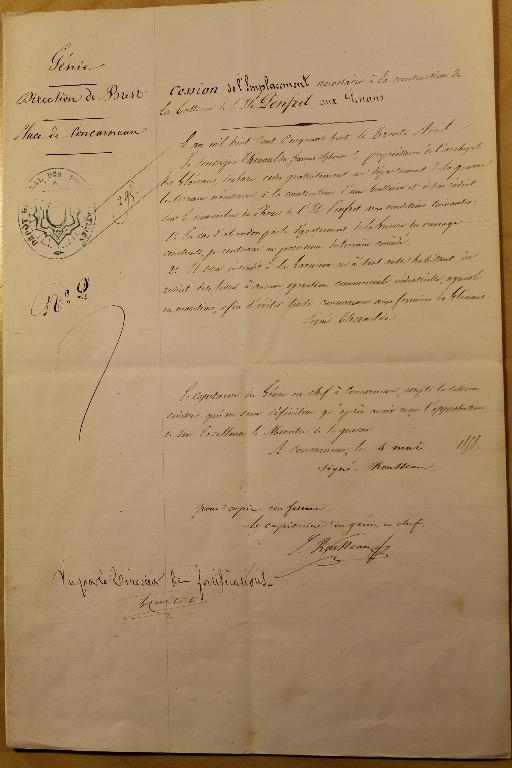 Génie
Direction de Brest
Place de Concarneau
N° 2
Cession de l'Emplacement nécessaire à la construction de
la batterie de l'Ile Penfret aux Glénans
L'an mil huit cent cinquante huit le trente Avril
Je soussigné propriétaire de l'archipel
des Glénans, déclare céder gratuitement au département de la guerre
le terrain nécessaire à la construction d'une batterie et à son réduit
sur le mamelon du Phare de l'Ile Penfret aux conditions suivantes:
1° En cas d'abandon par le département de la Guerre des ouvrages
construits, je rentrerai en possession du terrain concédé.
2° Il sera interdit à la Garnison ou à tout autre habitant du
réduit de se livrer à aucune opération commerciale, industrielle, agricole
ou maritime, afin d'éviter toute concurrence aux fermiers des Glénans.
Signé
Le capitaine du Génie en chef à Concarneau, accepte la cession
ci-dessus qui ne sera définitive qu'après avoir reçu l'approbation
de Son Excellence le Ministre de la guerre
A Concarneau, le 4 mai 1858
Signé Rousseau
pour copie conforme
Le capitaine du génie en chef
Rousseau
Vu par le Directeur des fortifications